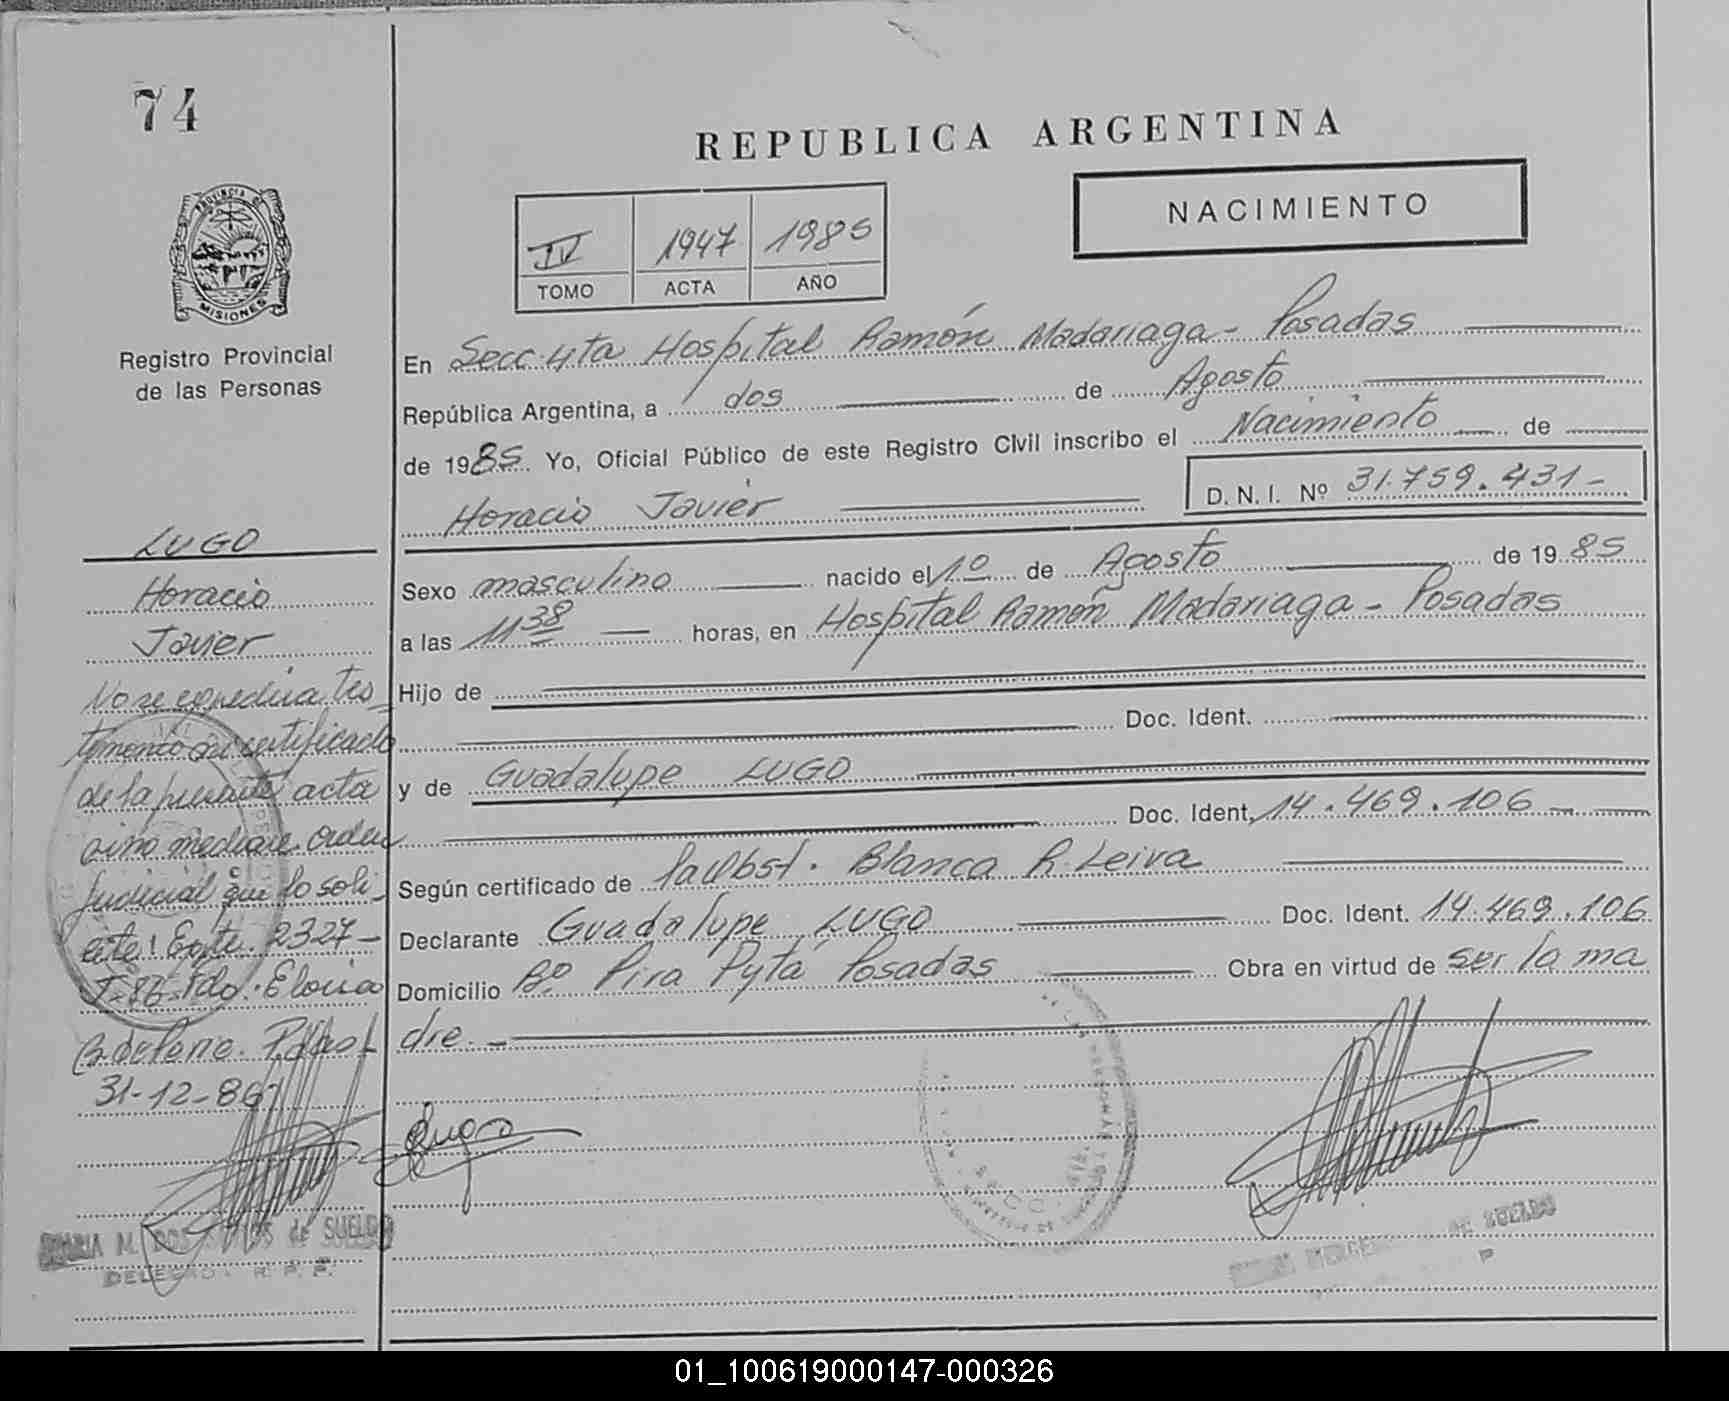 74
REPUBLICA ARGENTINA
NACIMIENTO
IV 1947 1985
TOMO ACTA AÑO
PROVINCIA DE
MISIONES
Registro Provincial
de las Personas
En Secc. 4ta Hospital Ramón Madariaga - Posadas
República Argentina, a dos de Agosto
de 1985 Yo, Oficial Público de este Registro Civil inscribo el Nacimiento de
Horacio Javier
D. N. I. Nº 31.759.431-
Sexo masculino nacido el 1º de Agosto de 1985
a las 11 38 horas, en Hospital Ramón Madariaga - Posadas
Hijo de
Doc. Ident.
y de Guadalupe LUGO
Doc. Ident. 14.469.106 -
Según certificado de Blanca R. Leiva
Declarante Guadalupe LUGO Doc. Ident. 14.469.106
Domicilio Bº. Pira Pytá Posadas Obra en virtud de ser la ma
dre. -
LUGO
Horacio
Javier
No se expedirá tes
timonio ni certificado
de la presente acta
sino mediante orden
Judicial que lo soli-
cite! Expte. 2327-
31-12-86
Lugo
M. DOS de SUELDO
DELEGADA R. P. P.
DE SUELDO
01_100619000147-000326